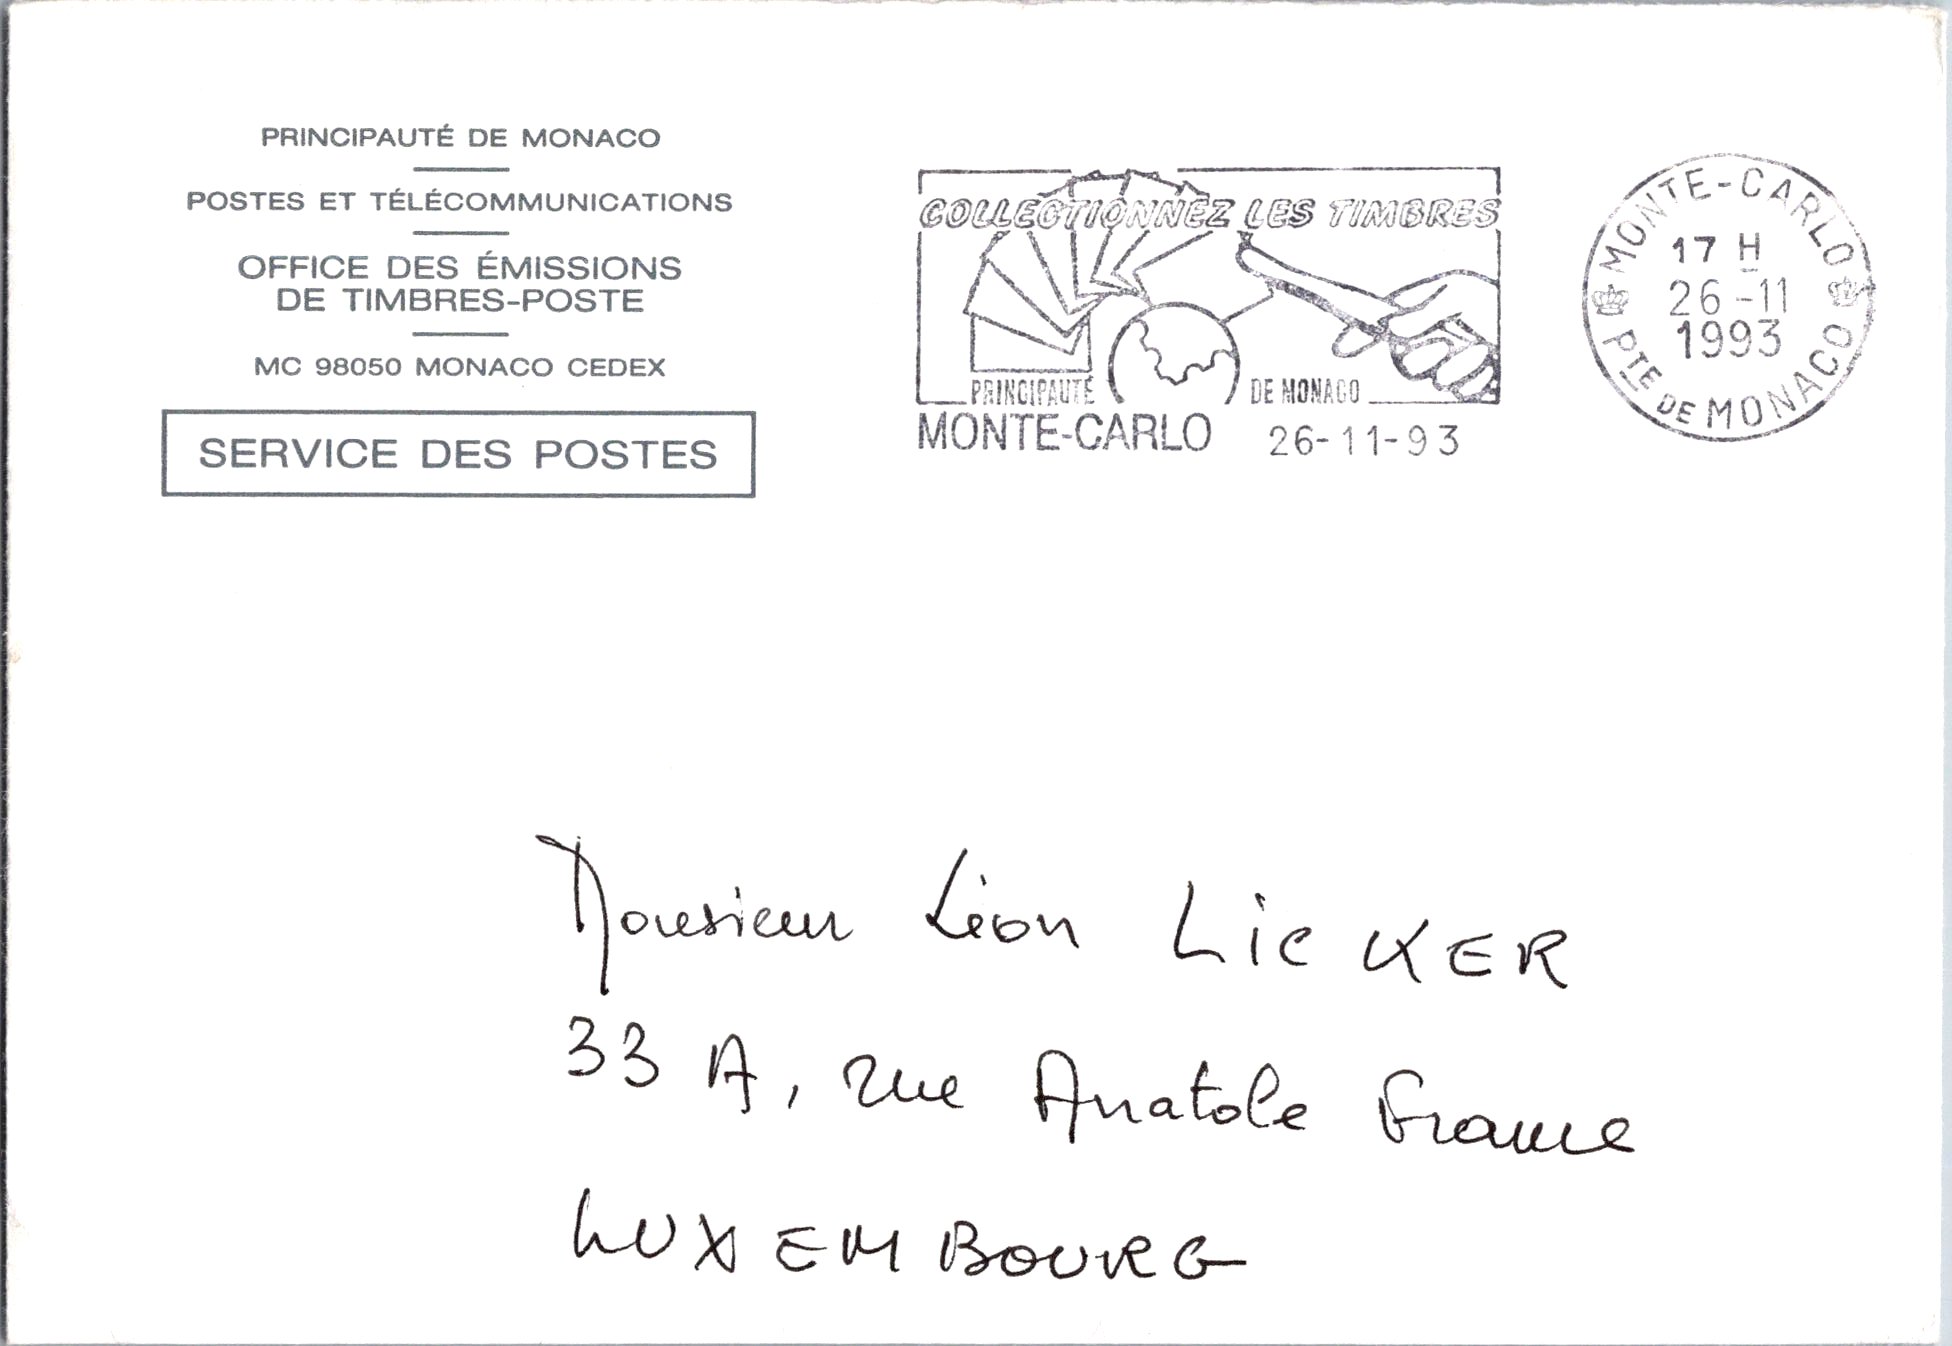 PRINCIPAUTÉ DE MONACO
POSTES ET TÉLÉCOMMUNICATIONS
OFFICE DES ÉMISSIONS
DE TIMBRES-POSTE
MC 98050 MONACO CEDEX
SERVICE DES POSTES
COLLECTIONNEZ LES TIMBRES
PRINCIPAUTÉ DE MONACO
MONTE-CARLO 26-11-93
MONTE-CARLO
17 H
26-11
1993
PTE DE MONACO
Monsieur Léon LicKER
33 A, rue Anatole France
LUXEMBOURG